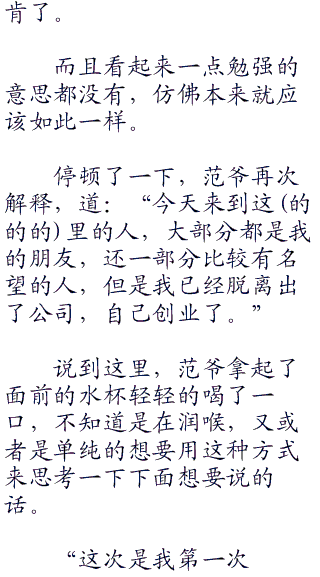 肯了。
而且看起来一点勉强的
意思都没有，仿佛本来就应
该如此一样。
停顿了一下，范爷再次
解释，道：“今天来到这(的
的的)里的人，大部分都是我
的朋友，还一部分比较有名
望的人，但是我已经脱离出
了公司，自己创业了。”
说到这里，范爷拿起了
面前的水杯轻轻的喝了一
口，不知道是在润喉，又或
者是单纯的想要用这种方式
来思考一下下面想要说的
话。
“这次是我第一次